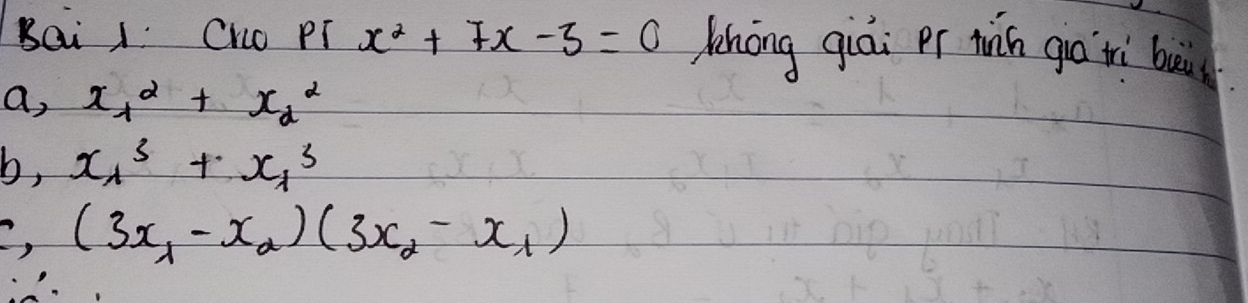 Bài 1: Cho PT x² + 7x - 3 = 0 không giải PT tính giá trị biểu
a, x₁² + x₂²
b, x₁³ + x₁³
c, (3x₁ - x₂)(3x₂ - x₁)